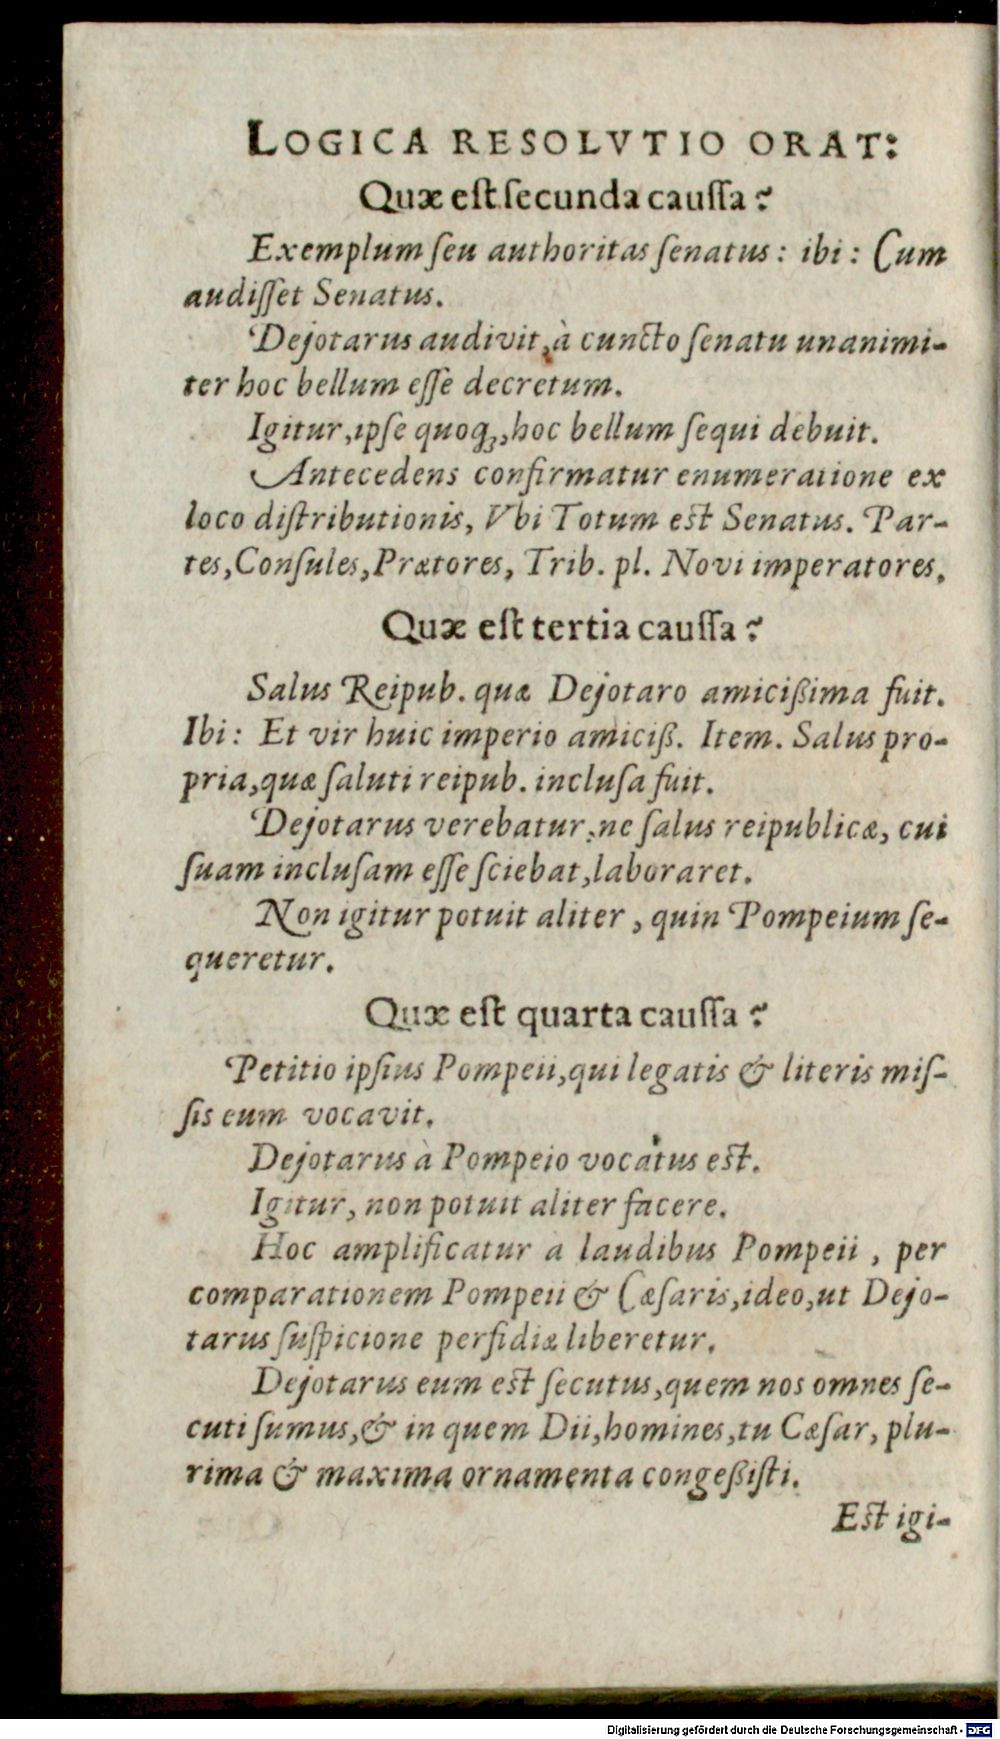 LOGICA RESOLVTIO ORAT:
Quæ est secunda caussa?
Exemplum seu authoritas senatus: ibi: Cum
audisset Senatus.
Dejotarus audivit, à cuncto senatu unanimi-
ter hoc bellum esse decretum.
Igitur, ipse quoq;, hoc bellum sequi debuit.
Antecedens confirmatur enumeratione ex
loco distributionis, Vbi Totum est Senatus. Par-
tes, Consules, Prætores, Trib. pl. Novi imperatores.
Quæ est tertia caussa?
Salus Reipub. quæ Dejotaro amicißima fuit.
Ibi: Et vir huic imperio amiciß. Item. Salus pro-
pria, quæ saluti reipub. inclusa fuit.
Dejotarus verebatur, ne salus reipublicæ, cui
suam inclusam esse sciebat, laboraret.
Non igitur potuit aliter, quin Pompeium se-
queretur.
Quæ est quarta caussa?
Petitio ipsius Pompeii, qui legatis & literis mis-
sis eum vocavit.
Dejotarus à Pompeio vocatus est.
Igitur, non potuit aliter facere.
Hoc amplificatur a laudibus Pompeii, per
comparationem Pompeii & Cæsaris, ideo, ut Dejo-
tarus suspicione perfidiæ liberetur.
Dejotarus eum est secutus, quem nos omnes se-
cuti sumus, & in quem Dii, homines, tu Cæsar, plu-
rima & maxima ornamenta congeßisti.
Est igi-
Digitalisierung gefördert durch die Deutsche Forschungsgemeinschaft - DFG